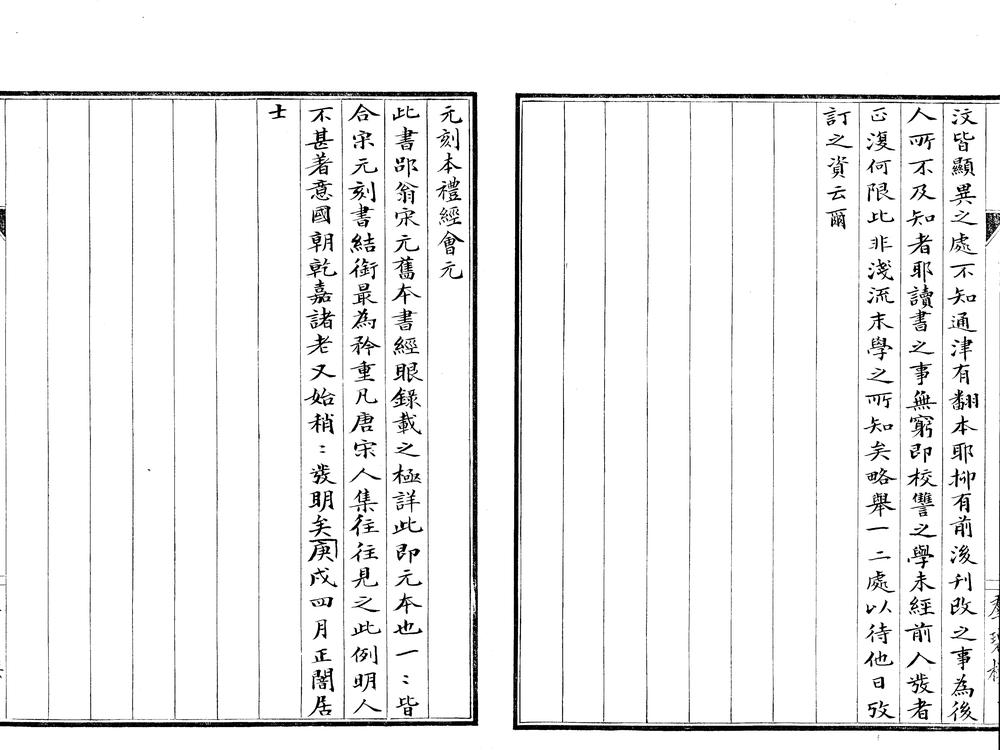 汶皆顯異之處不知通津有翻本耶抑有前後刊改之事為後
人所不及知者耶讀書之事無窮即校讐之學未經前人發者
正復何限此非淺流末學之所知矣略舉一二處以待他日攷
訂之資云爾
元刻本禮經會元
此書郘翁宋元舊本書經眼錄載之極詳此即元本也一：皆
合宋元刻書結銜最為矜重凡唐宋人集往往見之此例明人
不甚著意國朝乾嘉諸老又始稍：發明矣庚戌四月正闇居
士